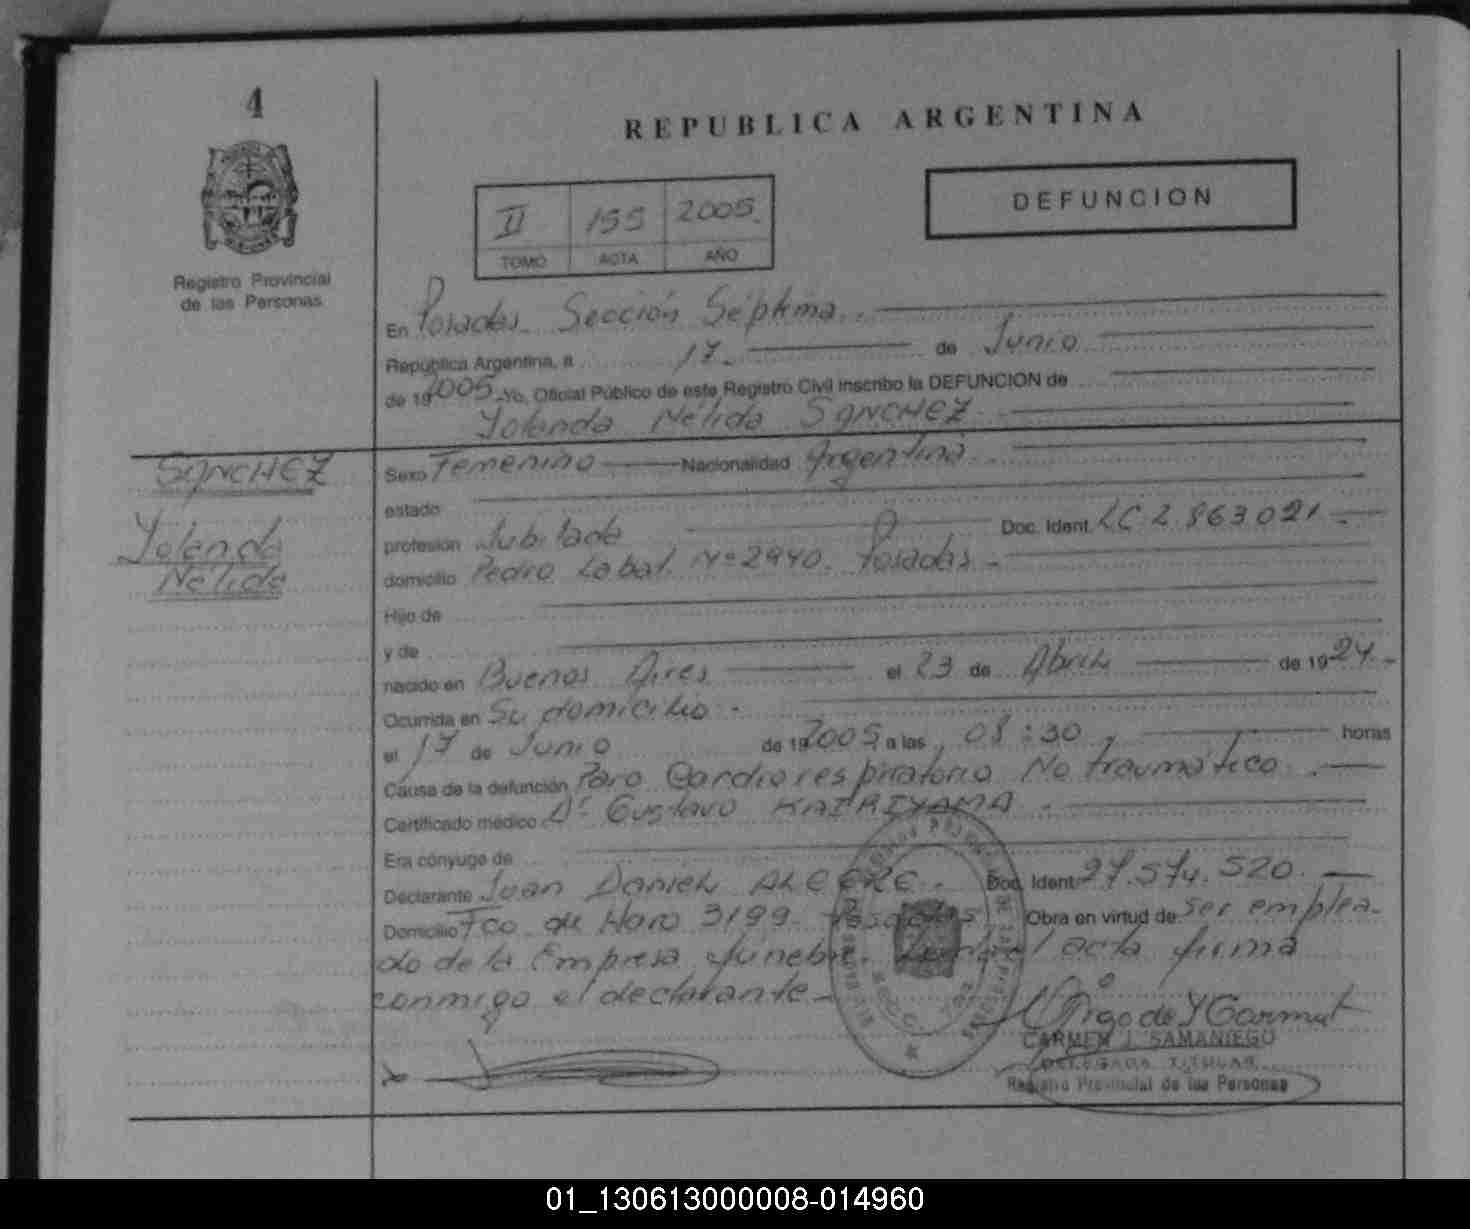 4
Registro Provincial
de las Personas
REPUBLICA ARGENTINA
DEFUNCION
II 155 2005.
TOMO ACTA AÑO
En Posadas. Sección Séptima.
República Argentina, a 17. de Junio
de 19 2005 Yo, Oficial Público de este Registro Civil inscribo la DEFUNCION de
Yolanda Nélida SANCHEZ
SANCHEZ
Yolanda
Nélida
Sexo Femenino Nacionalidad Argentina.
estado
profesión Jubilada Doc. Ident. LC 2.863.021.
domicilio Pedro Labat. Nº 2940. Posadas.
Hijo de
y de
nacido en Buenos Aires el 23 de Abril de 1924.
Ocurrida en Su domicilio.
el 17 de Junio de 19 2005 a las 08:30 horas
Causa de la defunción Paro Cardiorespiratorio No traumático.
Certificado médico Dr Gustavo
Era cónyuge de
Declarante Juan Daniel ALEGRE. Doc. Ident. 27.574.520.
Domicilio Fco de Haro 3199. Posadas Obra en virtud de Ser emplea-
do de la Empresa fúnebre. el acta firma
conmigo el declarante
CARMEN I. SAMANIEGO
DELEGADA TITULAR
Registro Provincial de las Personas
01_130613000008-014960